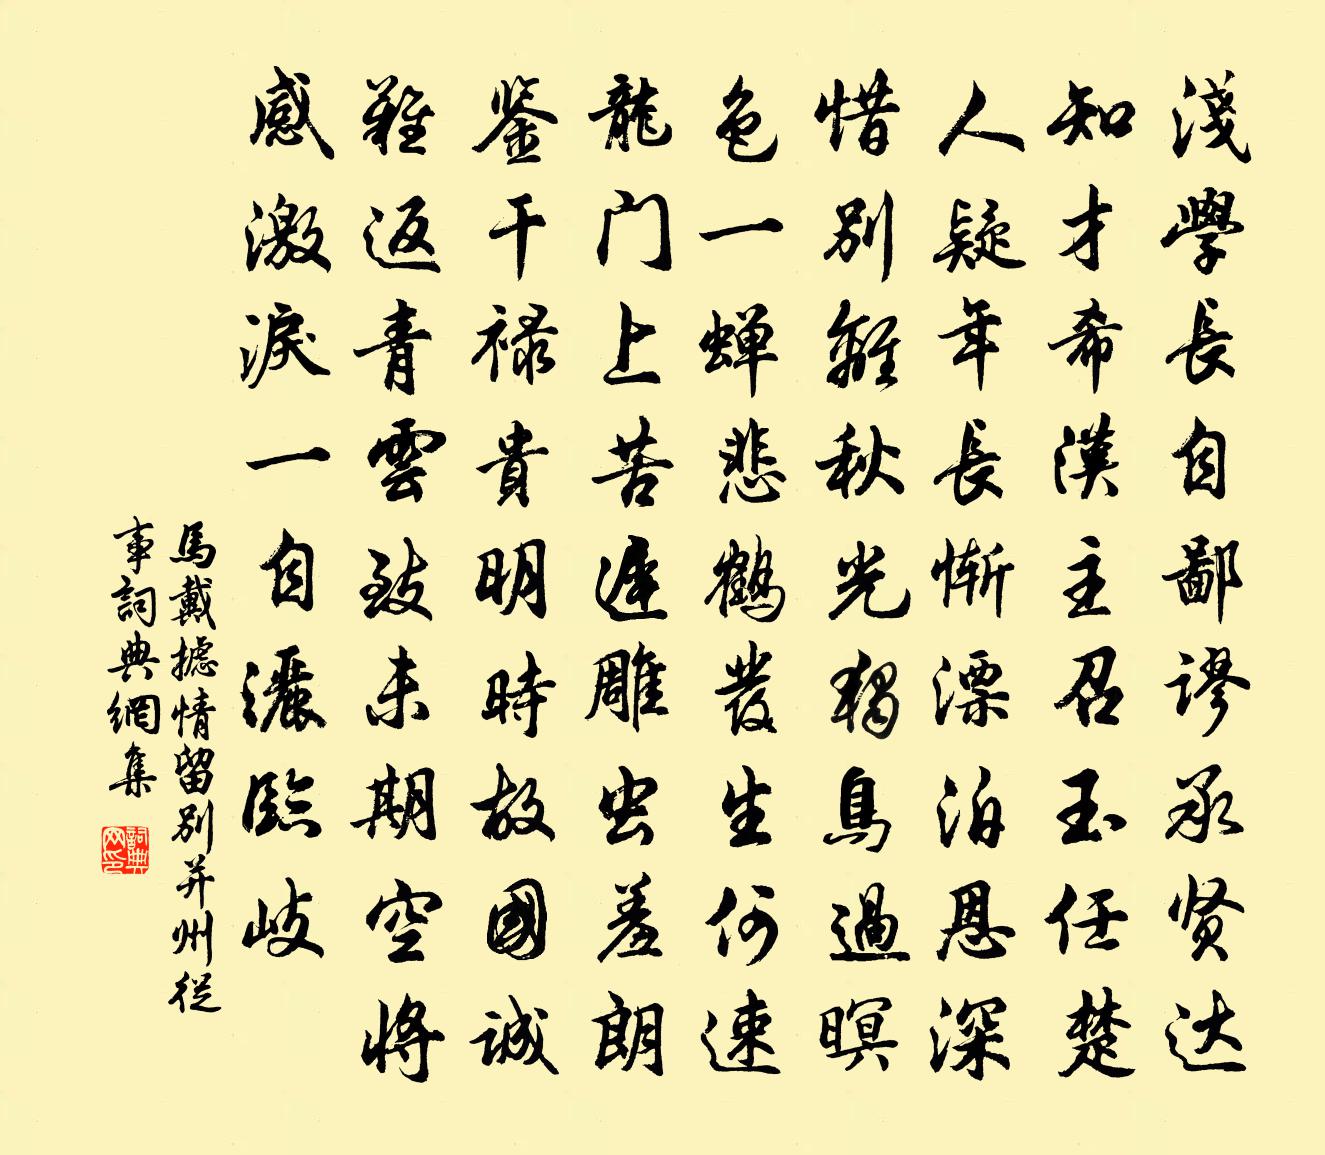 淺學長自鄙謬承贤达
知才希漢主召玉任楚
人疑年長慚漂泊恩深
惜別離秋光獨鳥過暝
色一蝉悲鶴發生何速
龍门上苦遲雕虫羞朗
鉴干禄貴明時故國誠
難返青雲致未期空將
感激淚一自灑臨岐
馬戴攄情留別并州從
事詞典網集
詞典网印